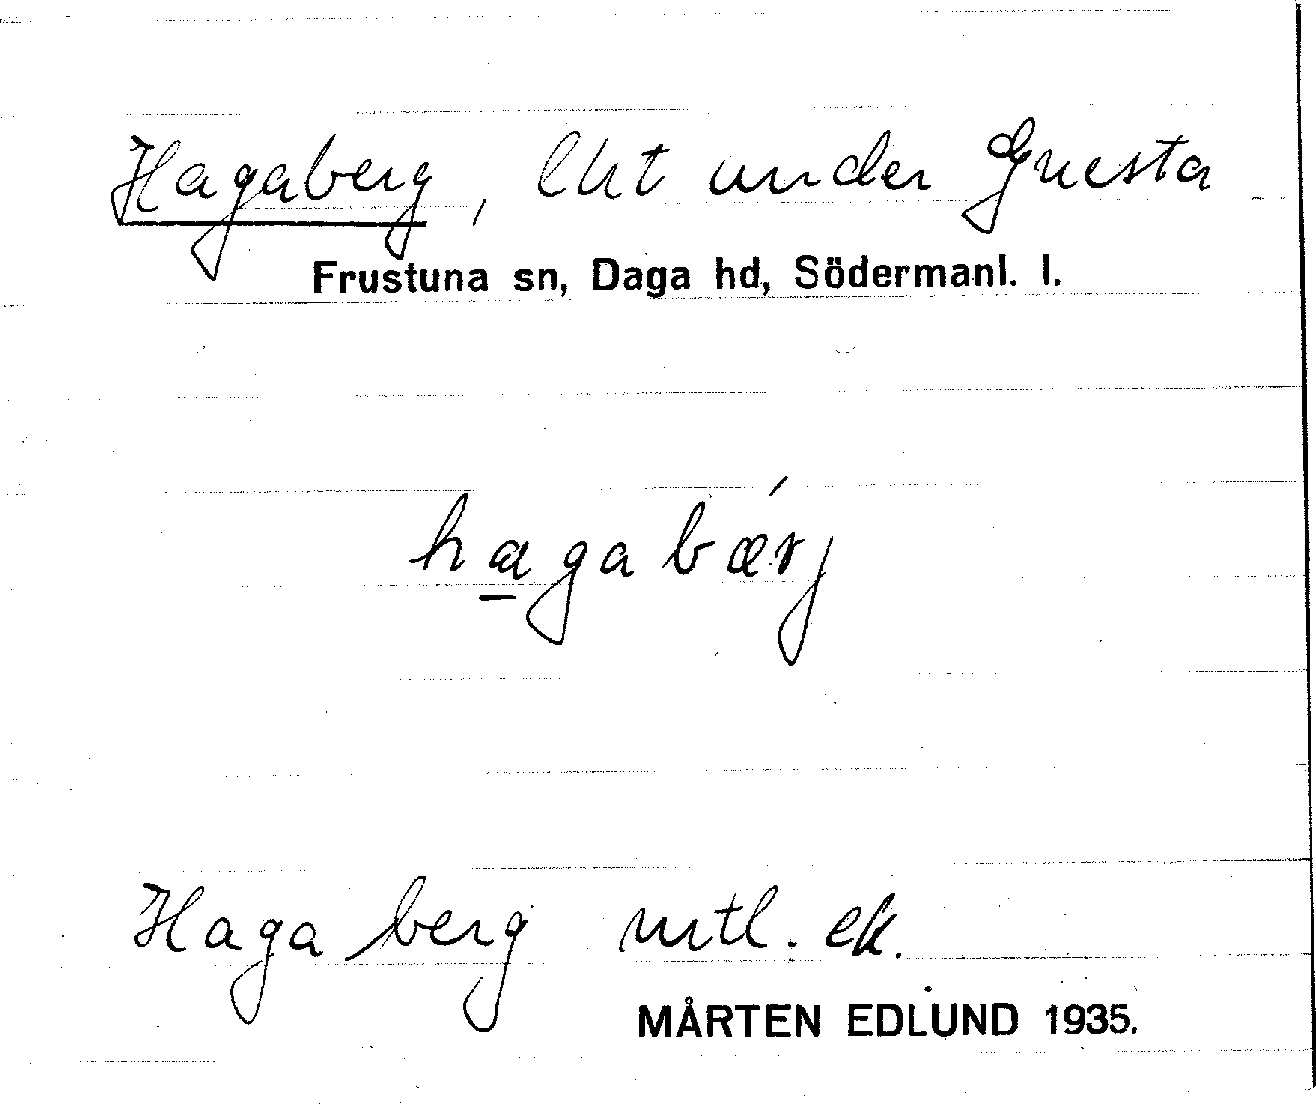 Hagaberg, lht under Gnesta
Frustuna sn, Daga hd, Södermanl. l.
hagabǽrj
Hagaberg mtl. ek.
MÅRTEN EDLUND 1935.